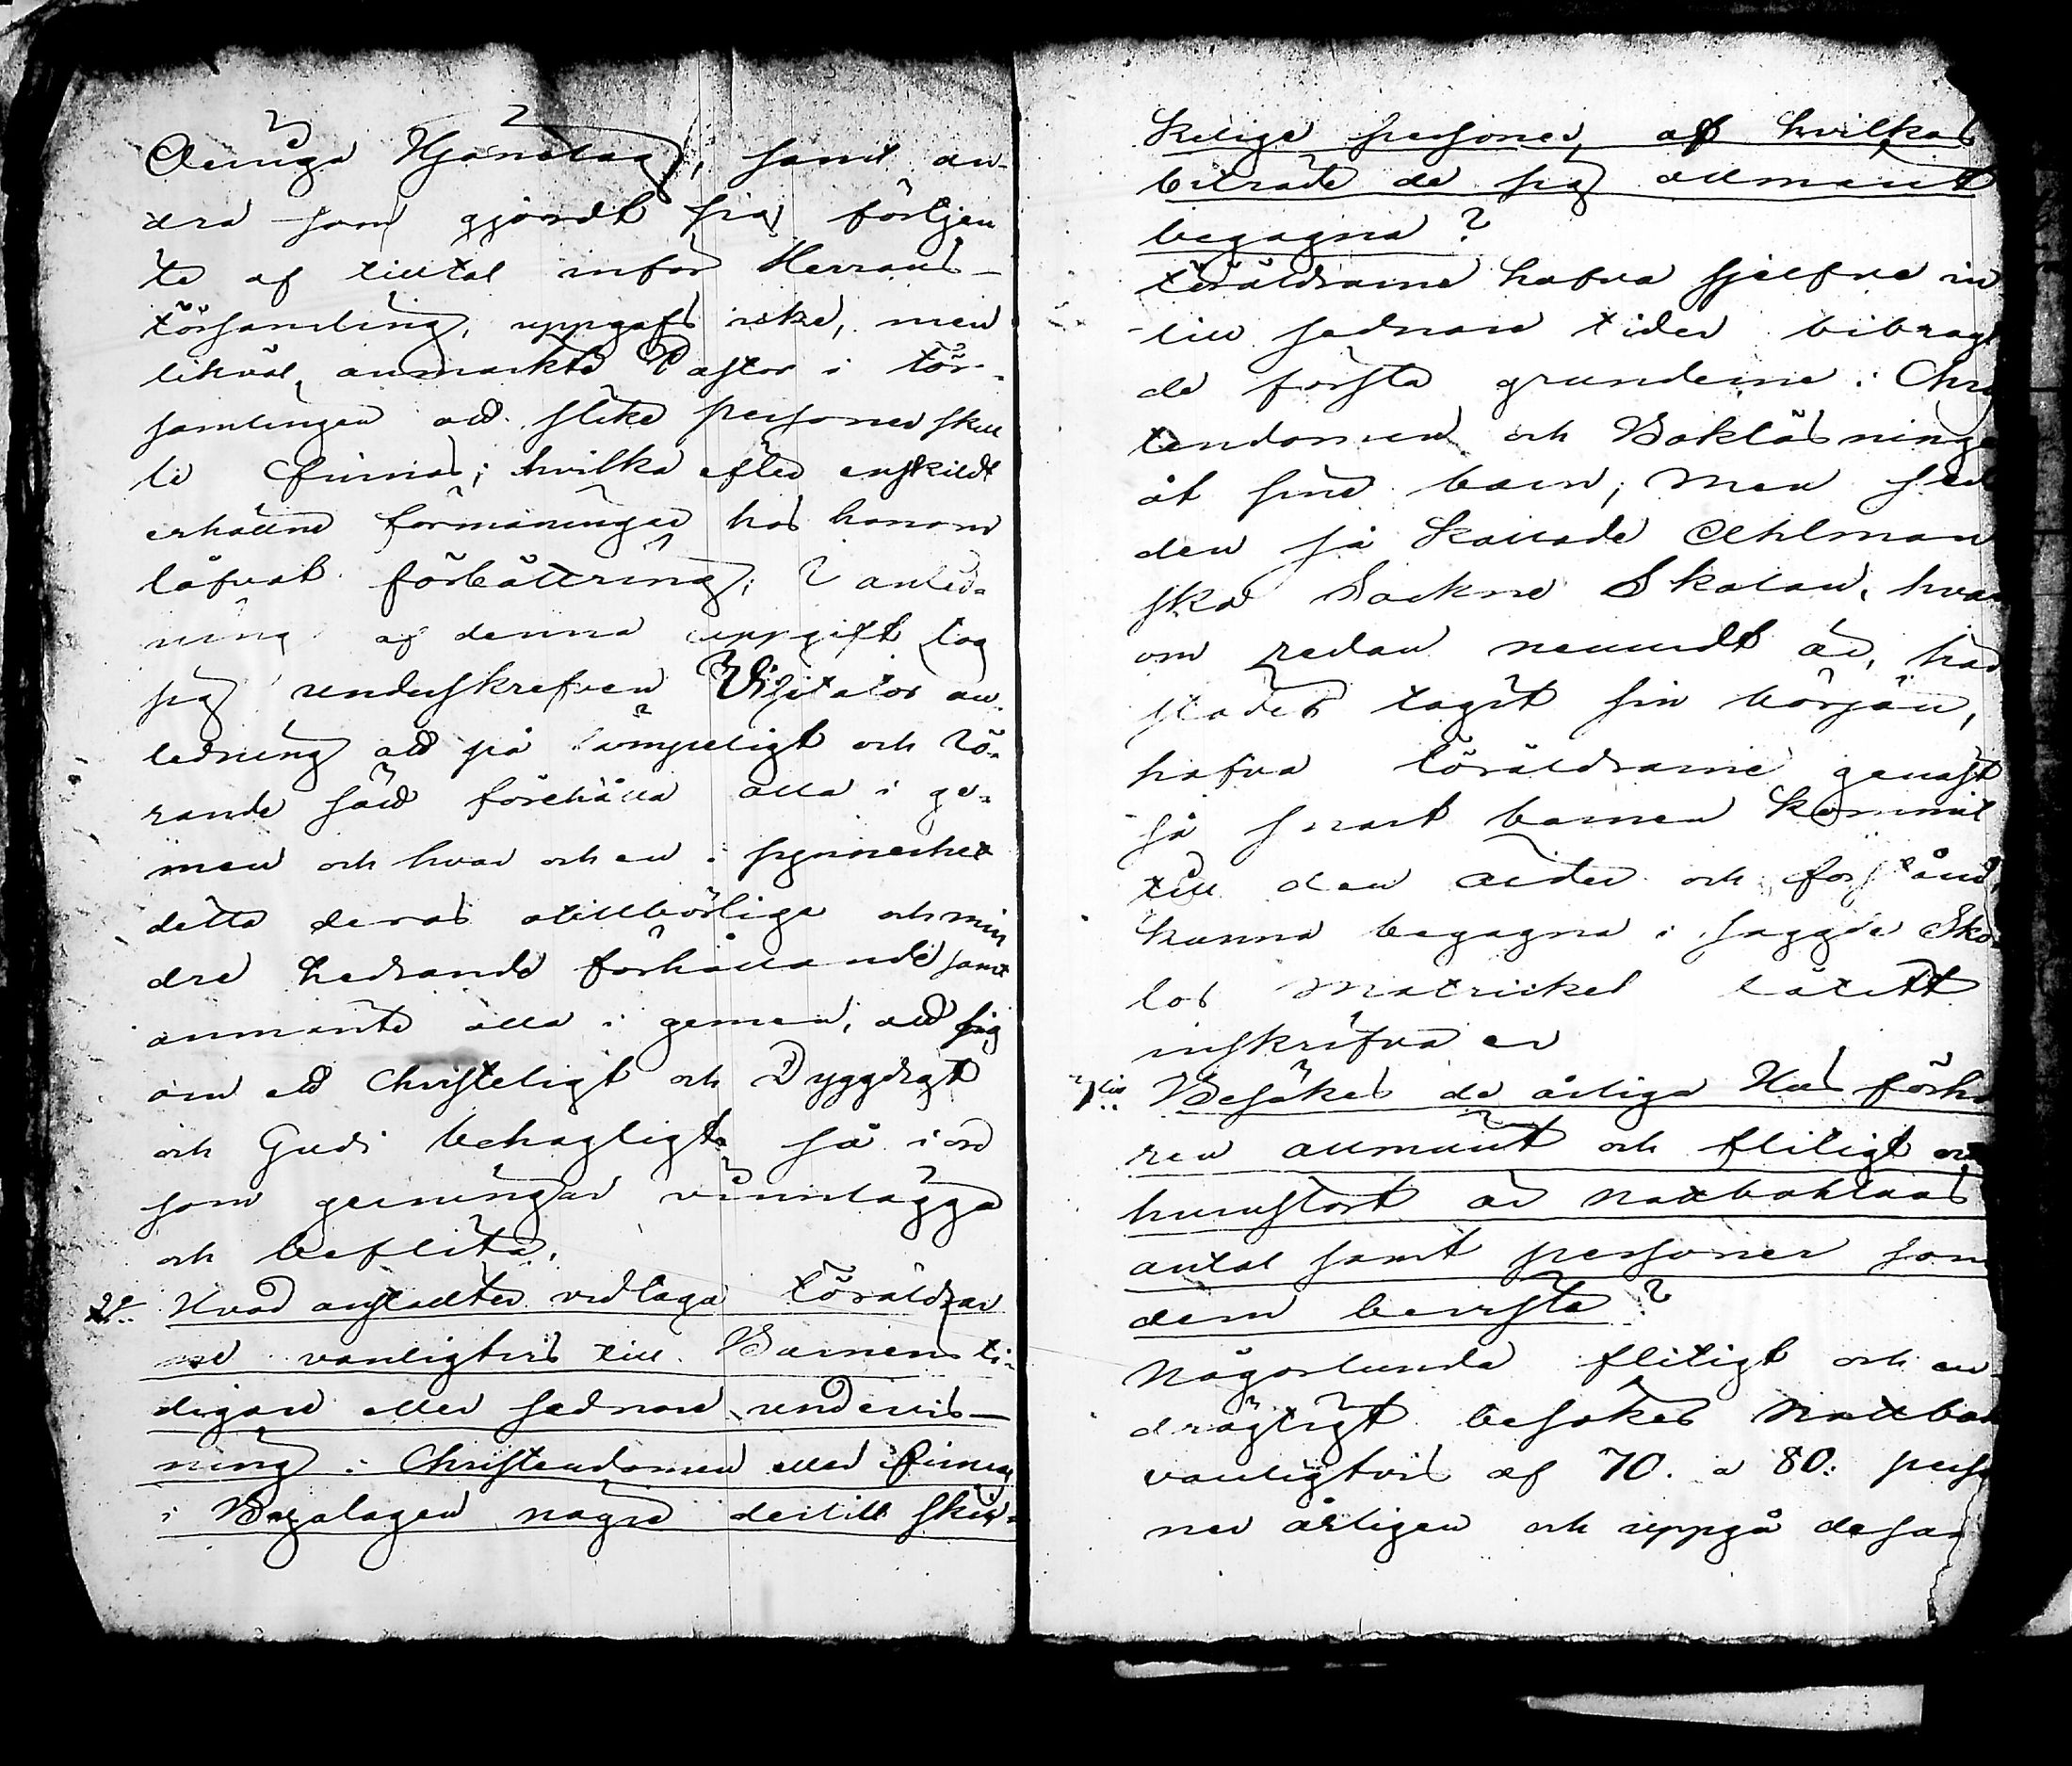 Oeniga Hjonelag, samt an-
dra som gjordt sig förtjen
te af tilltal inför Herrans-
församling, uppgafs icke, men
likväl anmärkte Pastor i för-
samlingen att slike personer skul
le finnas; hvilka efter enskildt
erhållne förmaningar hos honom
låfvat förbättring; I anled-
ning af denna uppgift tog
sig underskrefven Visitator an-
ledning att på lämpeligt och rö-
rande sätt förehålla alla i ge-
men och hvar och en i synnerhet
detta deras otillbörliga och min
dre hedrande förhållande samt
anmante alla i gemen, att sig
om ett Christeligt och Dygdigt
och Gudi behagligt så i ord
som gerningar vinnlägga
och beflita.
2o Hvad anstallter vidtaga föräldrar
ne vanligtvis till Barnens ti-
digare eller sednare undervis-
ning i Christendomen eller finnas
i Byalagen någre dertill skic-
kelige personer, af hvilkas
biträde de sig allmänt
begagna?
föräldrarne hafva sjelfve in
till sednare tider bibragt
de första grunderne i Chris
tendomen och Bokläsningen
åt sine barn; Men sedan
den så kallade Ahlman
ska Sockne Skolan, hvar
om redan nemndt är, här
städes tagit sin början,
hafva föräldrarne genast
så snart barnen kommit
till den ålder och förstånd
kunna begagna i saggde Sko
las Matrickel låtitt
inskrifva en
3tio Besökes de årliga Hus förhö
ren allmänt och flitigt och
hurustort är nattvardsbarnas
antal samt personer som
dem bevista?
Någorlunda flitigt och an
drägtigt besökes
vanligtvis af 70. a 80: perso
ner årligen och uppgå dessa